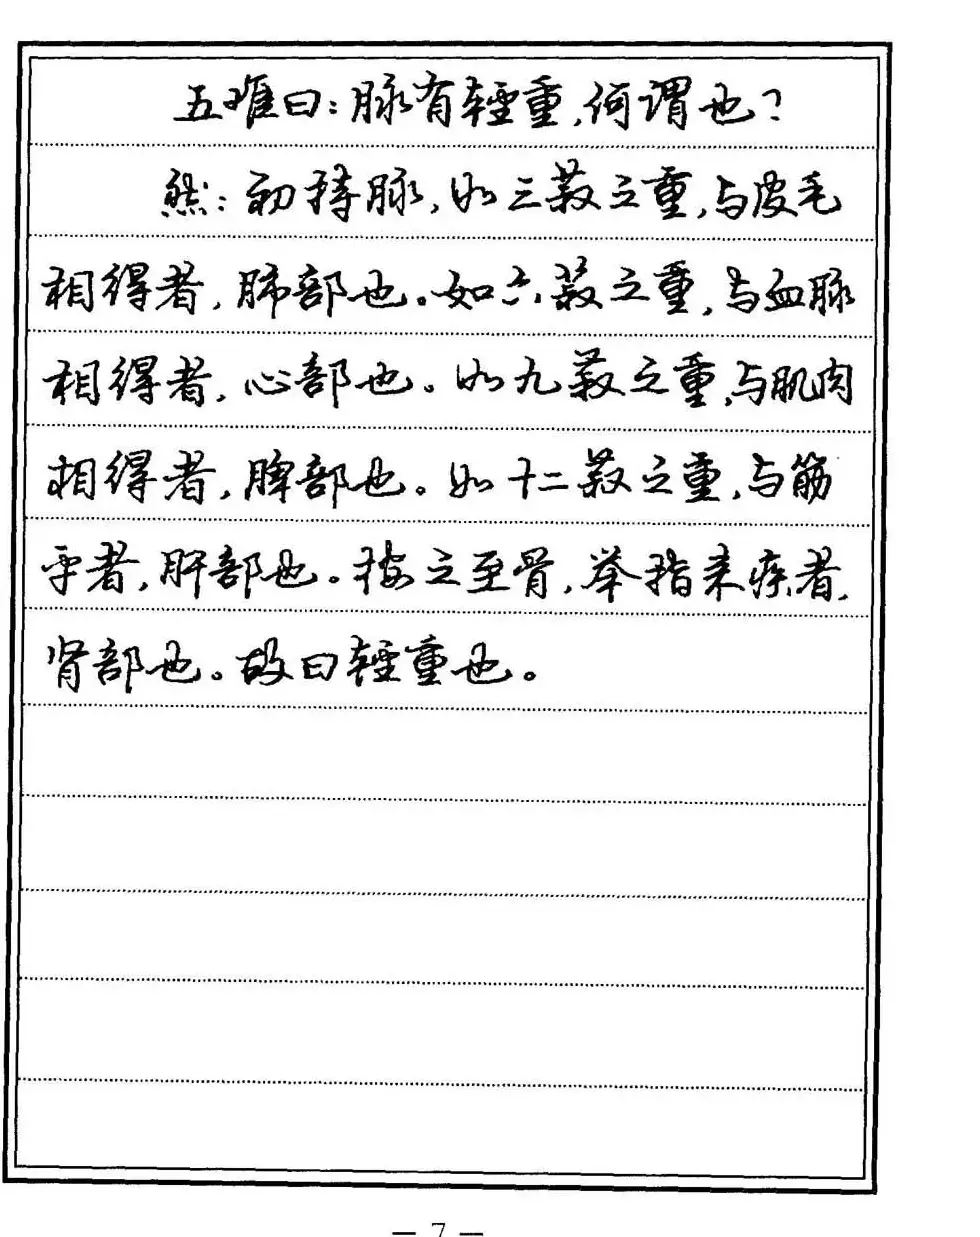 五难曰：脉有轻重，何谓也？
然：初持脉，如三菽之重，与皮毛
相得者，肺部也。如六菽之重，与血脉
相得者，心部也。如九菽之重，与肌肉
相得者，脾部也。如十二菽之重，与筋
平者，肝部也。按之至骨，举指来疾者，
肾部也。故曰轻重也。
— 7 —